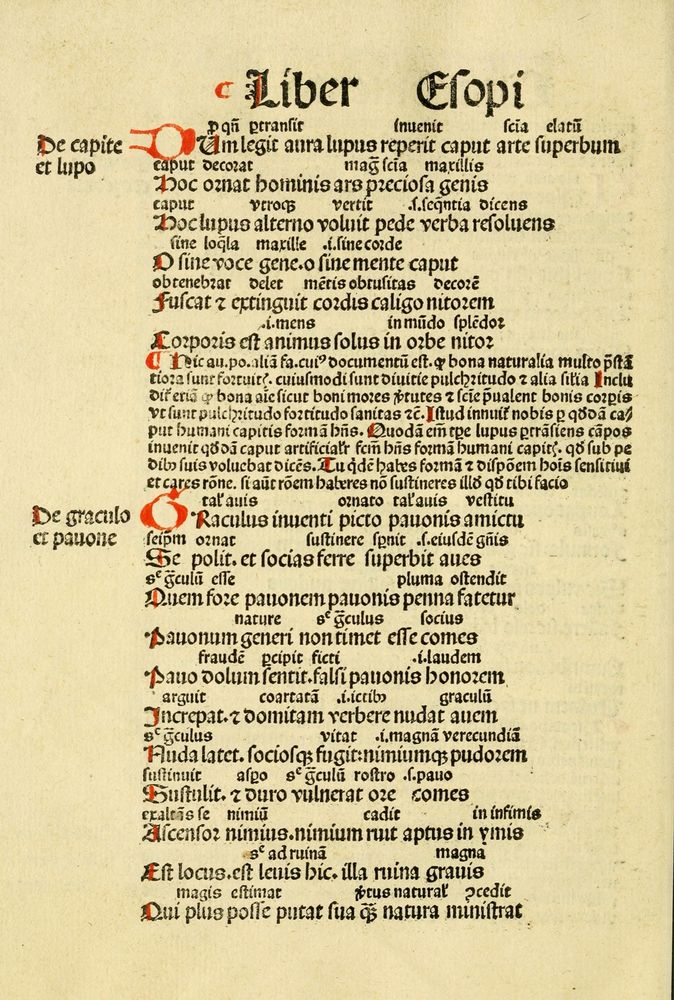 ¶ Liber Esopi
ꝑ qñ ꝑtransit inuenit scīa elatū
De capite
et lupo
DUm legit aura lupus reperit caput arte superbum
caput decorat maḡ scīa maxillis
Hoc ornat hominis ars preciosa genis
caput vtroqꝫ vertit .s. seqn̄tia dicens
Hoc lupus alterno voluit pede verba resoluens
sine loq̄la maxille .i. sine corde
O sine voce gene. o sine mente caput
obtenebrat delet mētis obtusitas decorē
Fuscat ⁊ extinguit cordis caligo nitorem
.i. mens in mūdo splēdor
Corporis est animus solus in orbe nitor
¶ Hic au. po. aliā fa. cuiꝰ documentū est. ꝙ bona naturalia multo p̄stā
tiora sunt fortuitꝭ. cuiusmodi sunt diuitie pulchritudo ⁊ alia sil̄ia Inclu
dit̉ etiā ꝙ bona aīe sicut boni mores ꝟtutes ⁊ scīe p̄ualent bonis corꝑis
vt sunt pulchritudo fortitudo sanitas ⁊c̄. Istud innuit̉ nobis ꝑ qd̓dā ca⸗
put humani capitis formā hn̄s. Quodā em̄ tꝑe lupus ꝑtrāsiens cāpos
inuenit qd̓dā caput artificialr̄ fcm̄ hn̄s formā humani capitꝭ. qd̓ sub pe
dibꝰ suis voluebat dicēs. Tu q̇dē habes formā ⁊ dispōem hoīs sensitiui
et cares rōne. si aūt rōem haberes nō sustineres illd̓ qd̓ tibi facio
tal' auis ornato tal' auis vestitu
De graculo
et pauone
GRaculus inuenti picto pauonis amictu
seip̄m ornat sustinere sꝑnit .s. eiusdē gn̄is
Se polit. et socias ferre superbit aues
sᶜ g̃culū esse pluma ostendit
Quem fore pauonem pauonis penna fatetur
nature sᶜ g̃culus socius
Pauonum generi non timet esse comes
fraudē ꝑcipit ficti .i. laudem
Pauo dolum sentit. falsi pauonis honorem
arguit coartatā .i. ictibꝰ graculū
Increpat. ⁊ domitam verbere nudat auem
sᶜ g̃culus vitat .i. magnā verecundiā
Nuda latet. sociosqꝫ fugit: nimiumqꝫ pudorem
sustinuit asꝑo sᶜ g̃culū rostro .s. pauo
Sustulit. ⁊ duro vulnerat ore comes
exaltās se nimiū cadit in infimis
Ascensor nimius. nimium ruit aptus in ymis
sᶜ ad ruinā magna
Est locus. est leuis hic. illa ruina grauis
magis estimat ꝟtus natural' ꝯcedit
Qui plus posse putat sua q̄ꝫ natura ministrat